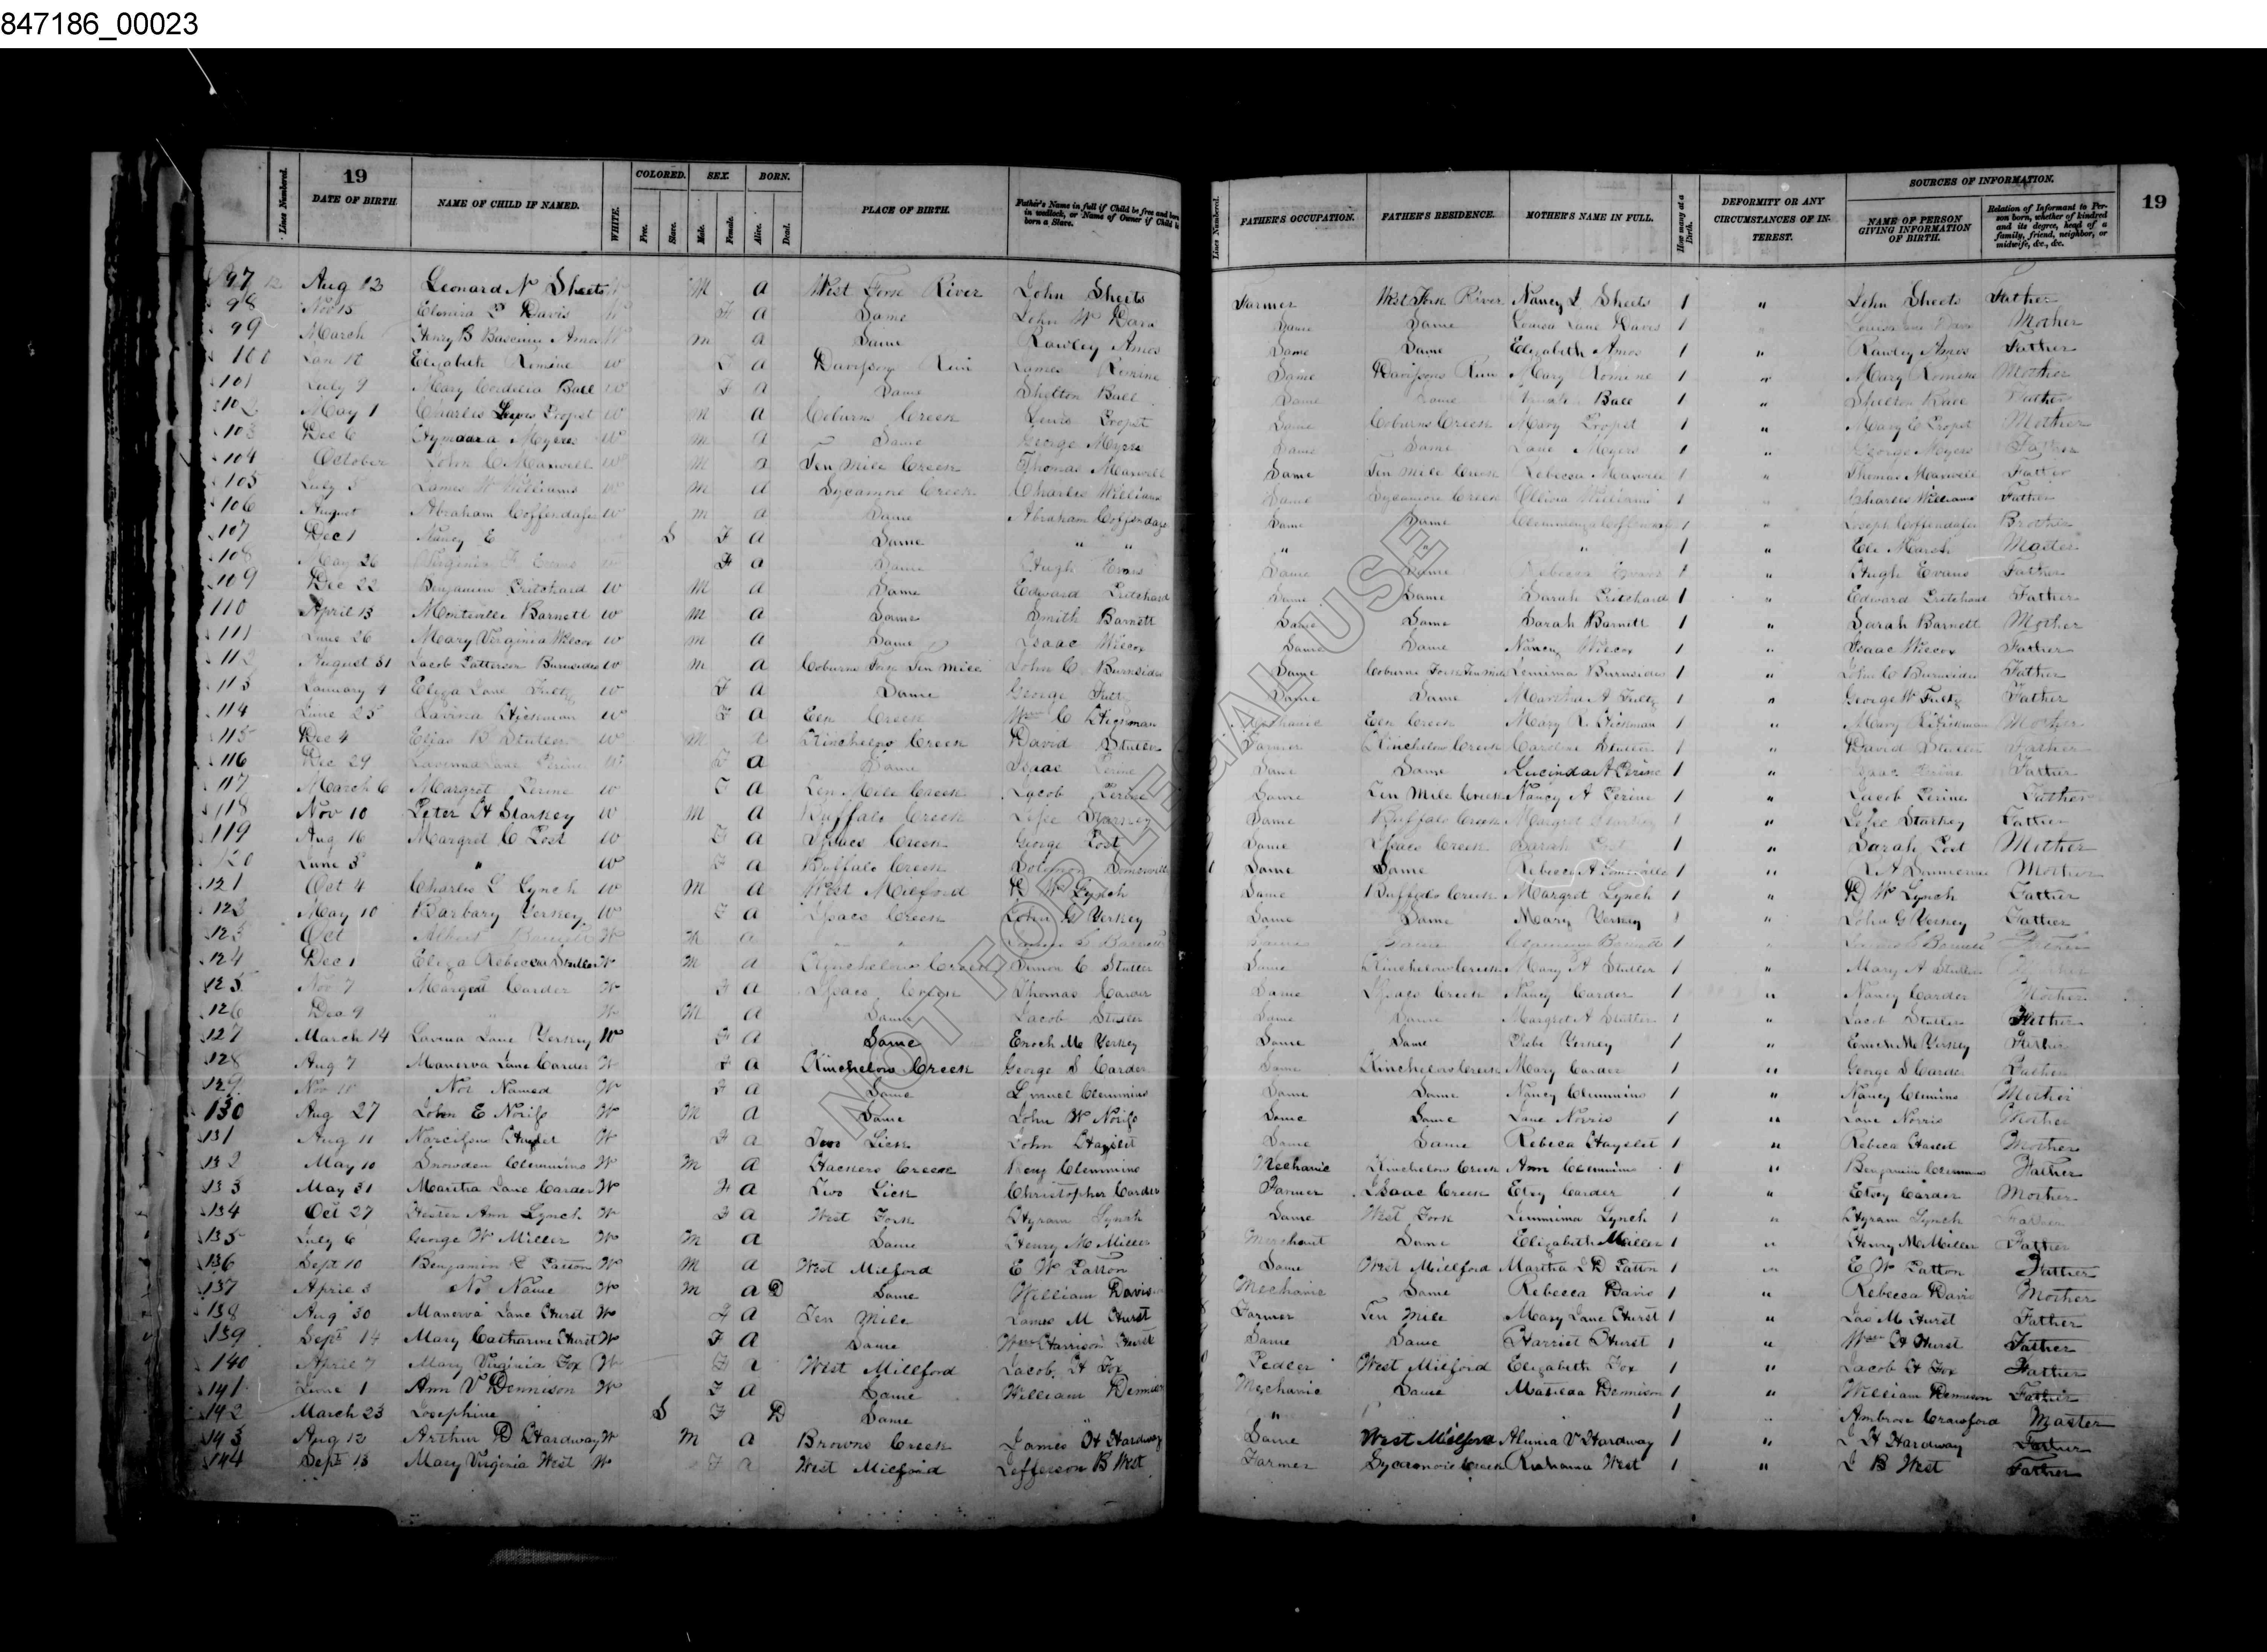 847186_00023
19
Lines Numbered.
DATE OF BIRTH
NAME OF CHILD IF NAMED.
WHITE.
COLORED.
Free.
Slave.
SEX.
Male.
Female.
BORN.
Alive.
Dead.
PLACE OF BIRTH.
Father's Name in full if Child be free and born in wedlock, or Name of Owner if Child be born a Slave.
Lines Numbered.
FATHER'S OCCUPATION.
FATHER'S RESIDENCE.
MOTHER'S NAME IN FULL.
How many at a Birth.
DEFORMITY OR ANY CIRCUMSTANCES OF INTEREST.
SOURCES OF INFORMATION.
NAME OF PERSON GIVING INFORMATION OF BIRTH.
Relation of Informant to Person born, whether of kindred and its degree, head of a family, friend, neighbor, or midwife, &c., &c.
19
97 Aug 23 Leonard N Sheets W M a West Fork River John Sheets Farmer West Fork River Nancy Sheets 1 " John Sheets Father
98 Nov 15 Davis W F a Same John W Davis Same Same Louisa Jane Davis 1 Mother
99 March Henry B Amos W m a Same Rawley Amos Same Same Elizabeth Amos 1 " Rawley Amos Father
100 Jan 10 Elizabeth Romine W F a Davissons Run James Romine Same Davissons Run Mary Romine 1 " Mary Romine Mother
101 July 9 Mary Cordelia Ball W F a Same Shelton Ball Same Same Ball 1 " Shelton Ball Father
102 May 1 Charles Propst W m a Coburns Creek Lewis Propst Same Coburns Creek Mary Propst 1 " Mary C Propst Mother
103 Dec 6 Myers W m a Same George Myers Same Same Jane Myers 1 " George Myers Father
104 October John C Maxwell W M a Ten Mile Creek Thomas Maxwell Same Ten Mile Creek Rebecca Maxwell 1 " Thomas Maxwell Father
105 July 5 James W Williams W m a Sycamore Creek Charles Williams Same Sycamore Creek Williams 1 " Charles Williams Father
106 August Abraham Coffendafer W m a Same Abraham Coffendafer Same Same 1 " Joseph Coffendafer Brother
107 Dec 1 Nancy E S F a Same " " " " 1 " Eli Marsh Master
108 May 26 Virginia Evans W F a Same Hugh Evans Same Same Rebecca Evans 1 " Hugh Evans Father
109 Dec 22 Benjamin Pritchard W M a Same Edward Pritchard Same Same Sarah Pritchard 1 " Edward Pritchard Father
110 April 13 Montiville Barnett W m a Same Smith Barnett Same Same Sarah Barnett 1 " Sarah Barnett Mother
111 June 26 Mary Virginia Wilcox W m a Same Isaac Wilcox Same Same Nancy Wilcox 1 " Isaac Wilcox Father
112 August 31 Jacob Patterson Burnsides W m a Coburns Fork Ten Mile John C Burnsides Same Coburns Fork Ten Mile Jemima Burnsides 1 " John C Burnsides Father
113 January 9 Eliza Jane Fultz W F a Same George Fultz Same Same Martha A Fultz 1 " George W Fultz Father
114 June 25 Lavina Hickman W F a Eel Creek Wm C Hickman Mechanic Eel Creek Mary R Hickman 1 " Mary R Hickman Mother
115 Dec 4 Elias B Stutler W m a Kinchelow Creek David Stutler Farmer Kinchelow Creek Caroline Stutler 1 " David Stutler Father
116 Dec 29 Jane Perine W F a Same Isaac Perine Same Same Lucinda A Perine 1 " Isaac Perine Father
117 March 6 Margret Perine W F a Ten Mile Creek Jacob Perine Same Ten Mile Creek Nancy A Perine 1 " Jacob Perine Father
118 Nov 10 Peter H Starkey W M a Buffalo Creek Starkey Same Buffalo Creek Margret Starkey 1 " Starkey Father
119 Aug 16 Margret C Post W F a Isaacs Creek George Post Same Isaacs Creek Sarah Post 1 " Sarah Post Mother
120 June 3 " W F a Buffalo Creek Solomon Somerville Same Same Rebecca A Somerville 1 " R A Mother
121 Oct 4 Charles L Lynch W M a West Milford D W Lynch Same Buffalo Creek Margret Lynch 1 " D W Lynch Father
122 May 10 Barbary Yerkey W F a Isaacs Creek John G Yerkey Same Same Mary Yerkey 1 " John G Yerkey Father
123 Oct Albert W M a Same Same 1 Father
124 Dec 1 Eliza Rebecca Stutler W M a Kinchelow Creek Simon C Stutler Same Kinchelow Creek Mary A Stutler 1 " Mary A Stutler Mother
125 Nov 7 Margret Carder W F a Isaacs Creek Thomas Carder Same Isaacs Creek Nancy Carder 1 " Nancy Carder Mother
126 Dec 9 " W M a Same Jacob Stutler Same Same Margret A Stutler 1 " Jacob Stutler Father
127 March 14 Lavina Jane Yerkey W F a Same Enoch M Yerkey Same Same Phebe Yerkey 1 " Enoch M Yerkey Father
128 Aug 7 Manerva Jane Carder W F a Kinchelow Creek George S Carder Same Kinchelow Creek Mary Carder 1 " George S Carder Father
129 Nov 11 Not Named W F a Same Lemuel Clemmins Same Same Nancy Clemmins 1 " Nancy Clemins Mother
130 Aug 27 John E Noriss W M a Same John W Noriss Same Same Jane Norris 1 " Jane Norris Mother
131 Aug 11 W F a Two Lick John Hayslet Same Same Rebeca Hayslet 1 " Rebeca Mother
132 May 10 Snowden Clemmins W M a Hackers Creek Clemmins Mechanic Kinchelow Creek Ann Clemmins 1 " Benjamin Clemmins Father
133 May 31 Martha Jane Carder W F a Two Lick Christopher Carder Farmer Isaac Creek Etsy Carder 1 " Etsey Carder Mother
134 Oct 27 Hester Ann Lynch W F a West Fork Hyram Lynch Same West Fork Jemmima Lynch 1 " Hyram Lynch Father
135 July 6 George W Miller W M a Same Henry M Miller Merchant Same Elizabeth Miller 1 " Henry M Miller Father
136 Sept 10 Benjamin Patton W M a West Milford E W Patton Same West Millford Martha L D Patton 1 " E W Patton Father
137 April 3 No Name W M a D Same William Davis Mechanic Same Rebecca Davis 1 " Rebecca Davis Mother
138 Aug 30 Manerva Jane Hurst W F a Ten Mile James M Hurst Farmer Ten Mile Mary Jane Hurst 1 " Jas M Hurst Father
139 Sept 14 Mary Catharine Hurst W F a Same Wm Harrison Hurst Same Same Harriet Hurst 1 " Wm H Hurst Father
140 April 7 Mary Virginia Fox W F a West Millford Jacob H Fox Pedler West Milford Elizabeth Fox 1 " Jacob H Fox Father
141 June 1 Ann V Dennison W F a Same William Dennison Mechanic Same Matilda Dennison 1 " William Dennison Father
142 March 23 Josephine S F D Same " 1 Ambrose Crawford Master
143 Aug 12 Arthur D Hardway W M a Browns Creek James H Hardway Same West Milford V Hardway 1 " J H Hardway Father
144 Sept 13 Mary Virginia West W F a West Milford Jefferson B West Farmer Sycamore Creek Ruhama West 1 " J B West Father
NOT FOR LEGAL USE